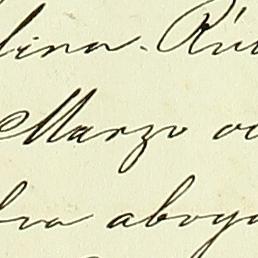 lina. Rú
Marzo oc
bra aboga